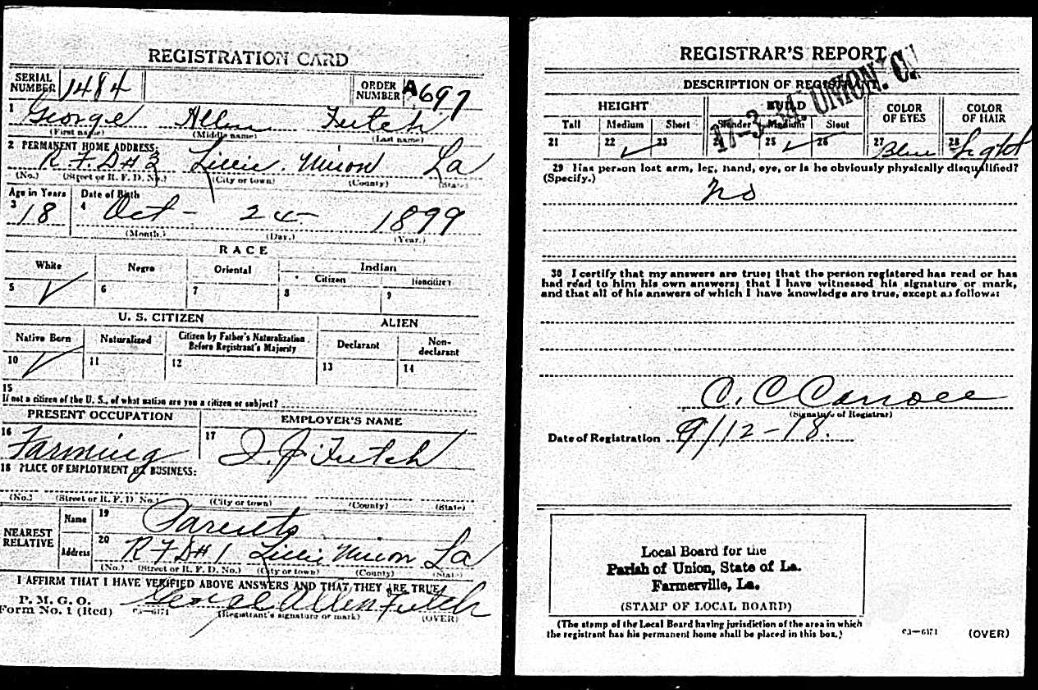 REGISTRATION CARD
SERIAL NUMBER 1484 ORDER NUMBER A697
1 George Allen Futch
(First name) (Middle name) (Last name)
2 PERMANENT HOME ADDRESS:
R F D # 3 Lillie Union La
(No.) (Street or R. F. D. No.) (City or town) (County) (State)
Age in Years Date of Birth
3 18 4 Oct - 24 - 1899
(Month.) (Day.) (Year.)
RACE
White Negro Oriental Indian
Citizen Noncitizen
5 ✓ 6 7 8 9
U. S. CITIZEN ALIEN
Native Born Naturalized Citizen by Father's Naturalization Before Registrant's Majority Declarant Non-declarant
10 ✓ 11 12 13 14
15
If not a citizen of the U. S., of what nation are you a citizen or subject?
PRESENT OCCUPATION EMPLOYER'S NAME
16 Farming 17 J. J. Futch
18 PLACE OF EMPLOYMENT OR BUSINESS:
(No.) (Street or R. F. D. No.) (City or town) (County) (State)
NEAREST RELATIVE Name 19 Parents
Address 20 R F D # 1 Lillie Union La
(No.) (Street or R. F. D. No.) (City or town) (County) (State)
I AFFIRM THAT I HAVE VERIFIED ABOVE ANSWERS AND THAT THEY ARE TRUE
P. M. G. O.
Form No. 1 (Red) 03—6171 George Allen Futch
(Registrant's signature or mark) (OVER)
REGISTRAR'S REPORT
17-3-34. UNION. C
DESCRIPTION OF REGISTRANT
HEIGHT BUILD COLOR OF EYES COLOR OF HAIR
Tall Medium Short Slender Medium Stout
21 22 ✓ 23 24 25 ✓ 26 27 Blue 28 Light
29 Has person lost arm, leg, hand, eye, or is he obviously physically disqualified?
(Specify.)
no
30 I certify that my answers are true; that the person registered has read or has
had read to him his own answers; that I have witnessed his signature or mark,
and that all of his answers of which I have knowledge are true, except as follows:
C. C. Carroll
(Signature of Registrar)
Date of Registration 9/12-18.
Local Board for the
Parish of Union, State of La.
Farmerville, La.
(STAMP OF LOCAL BOARD)
(The stamp of the Local Board having jurisdiction of the area in which
the registrant has his permanent home shall be placed in this box.)
03—6171 (OVER)